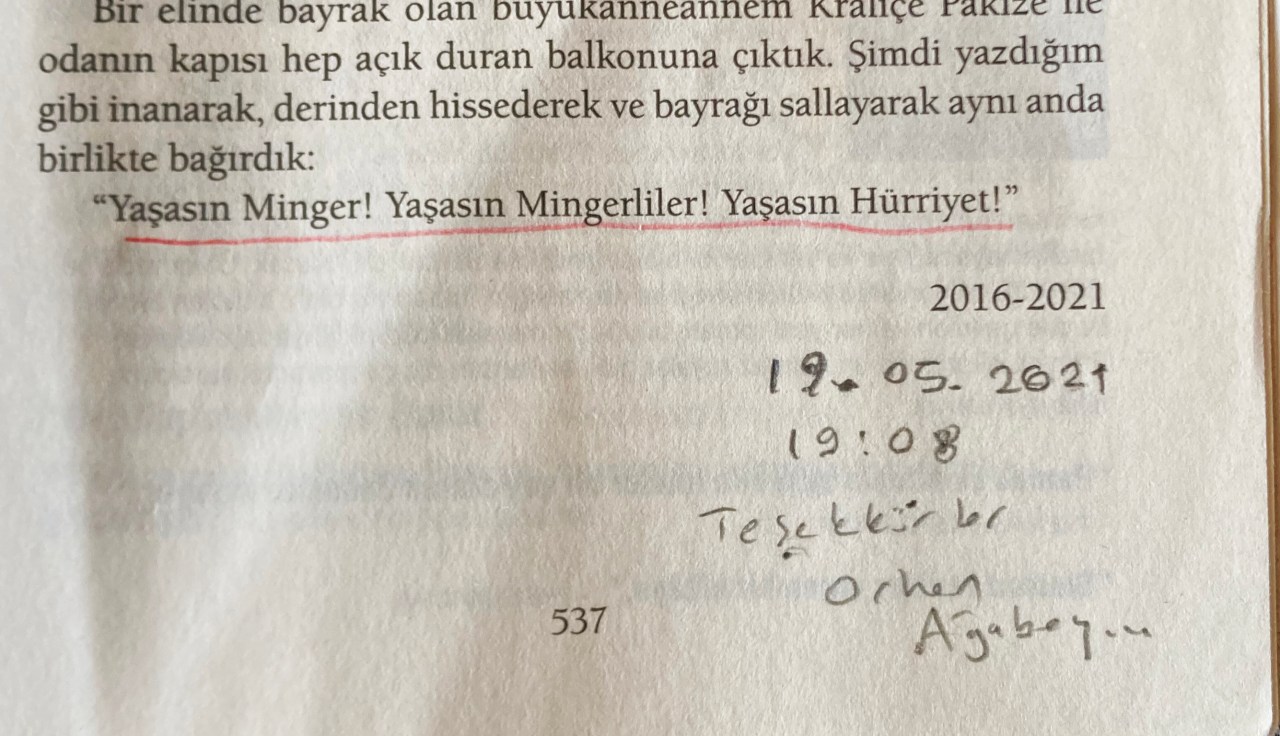 Bir elinde bayrak olan büyükanneannem Kraliçe Pakize ile
odanın kapısı hep açık duran balkonuna çıktık. Şimdi yazdığım
gibi inanarak, derinden hissederek ve bayrağı sallayarak aynı anda
birlikte bağırdık:
“Yaşasın Minger! Yaşasın Mingerliler! Yaşasın Hürriyet!”
2016-2021
19. 05. 2021
19:08
Teşekkürler
Orhan
Ağabey...
537